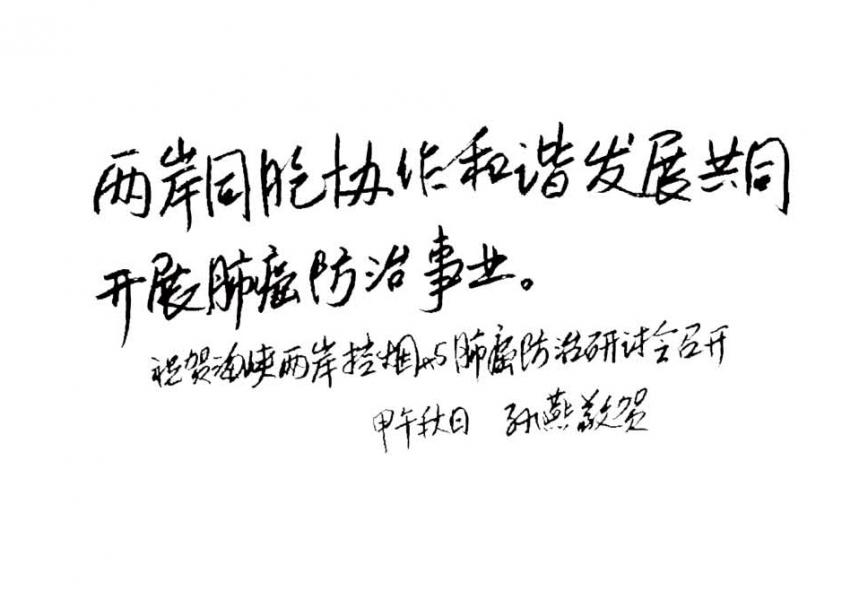 两岸同胞协作和谐发展共同
开展肺癌防治事业。
祝贺海峡两岸控烟与肺癌防治研讨会召开
甲午秋日 孙燕敬贺